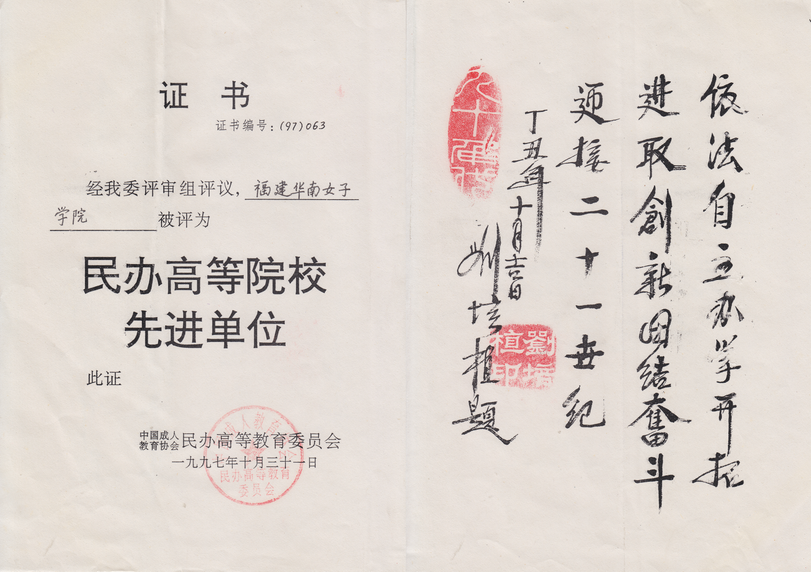 证 书
证书编号：(97)063
经我委评审组评议，福建华南女子
学院 被评为
民办高等院校
先进单位
此证
中国成人
教育协会 民办高等教育委员会
一九九七年十月三十一日
民办高等教育
委员会
依法自主办学开拓
進取創新团结奮斗
迎接二十一世纪
丁丑年十月吉日
刘培植題
劉培植印